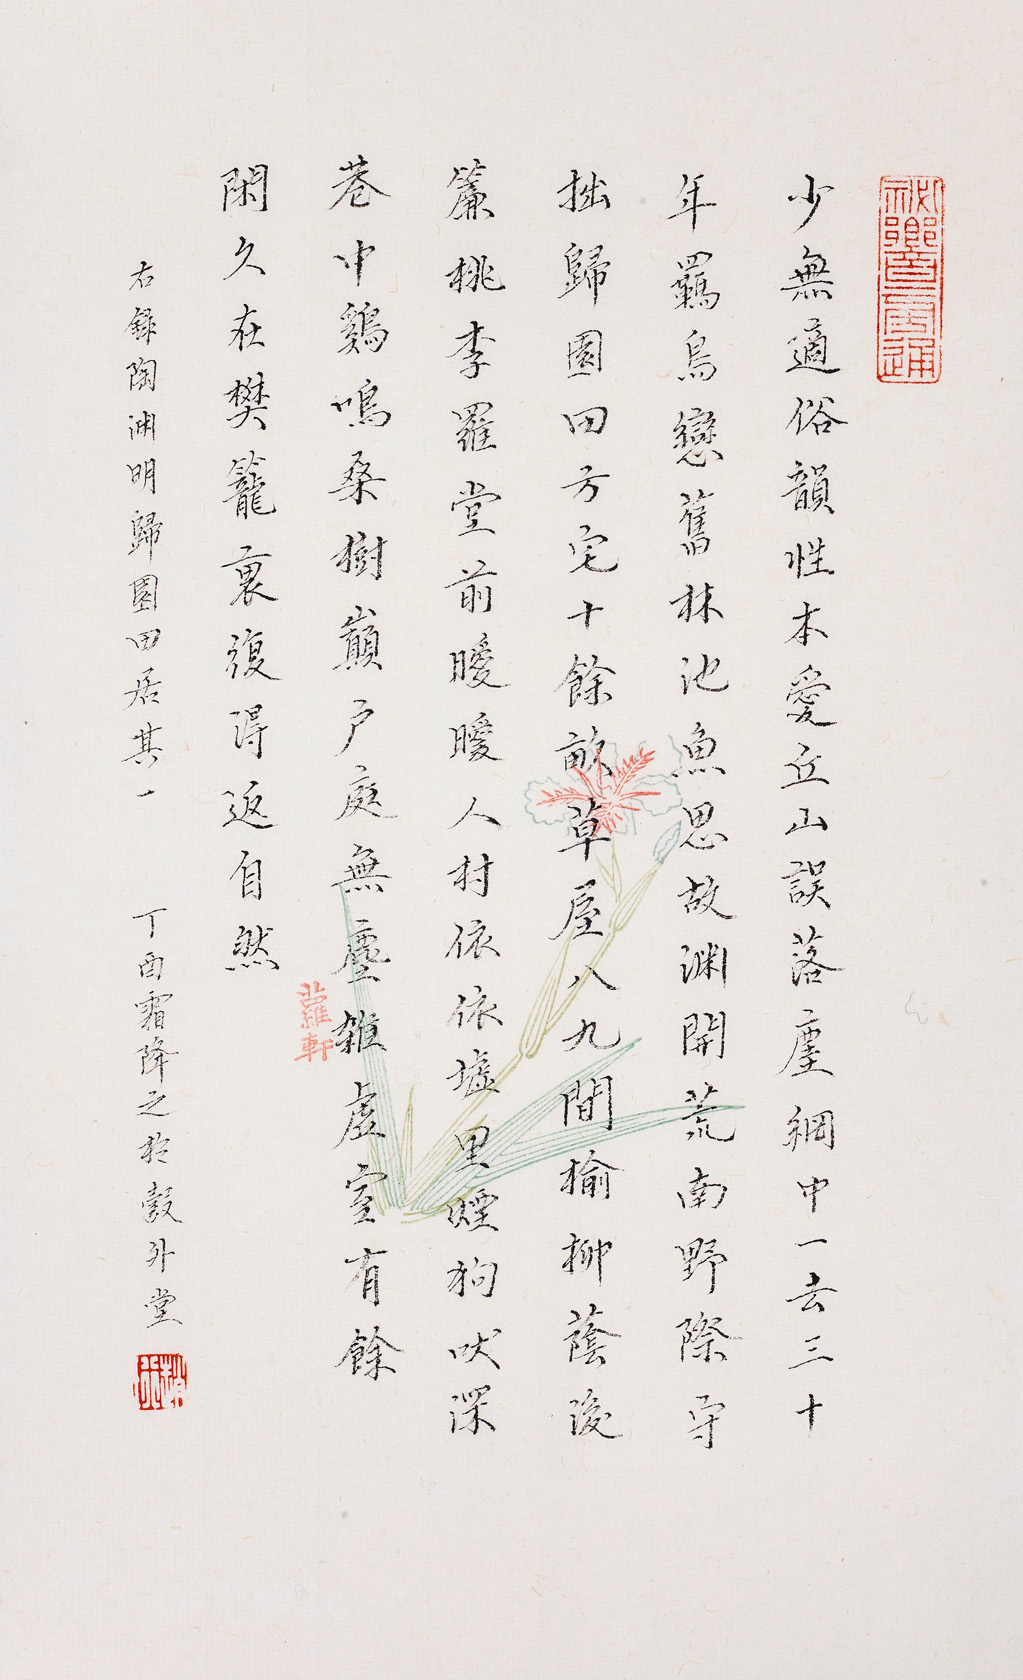 少無適俗韻性本愛丘山誤落塵網中一去三十
年羈鳥戀舊林池魚思故淵開荒南野際守
拙歸園田方宅十餘畝草屋八九間榆柳蔭後
簷桃李羅堂前曖曖遠人村依依墟里煙狗吠深
巷中鷄鳴桑樹巔户庭無塵雜虛室有餘
閑久在樊籠裏復得返自然
右録陶淵明歸園田居其一 丁酉霜降之於彀外堂
蘿軒